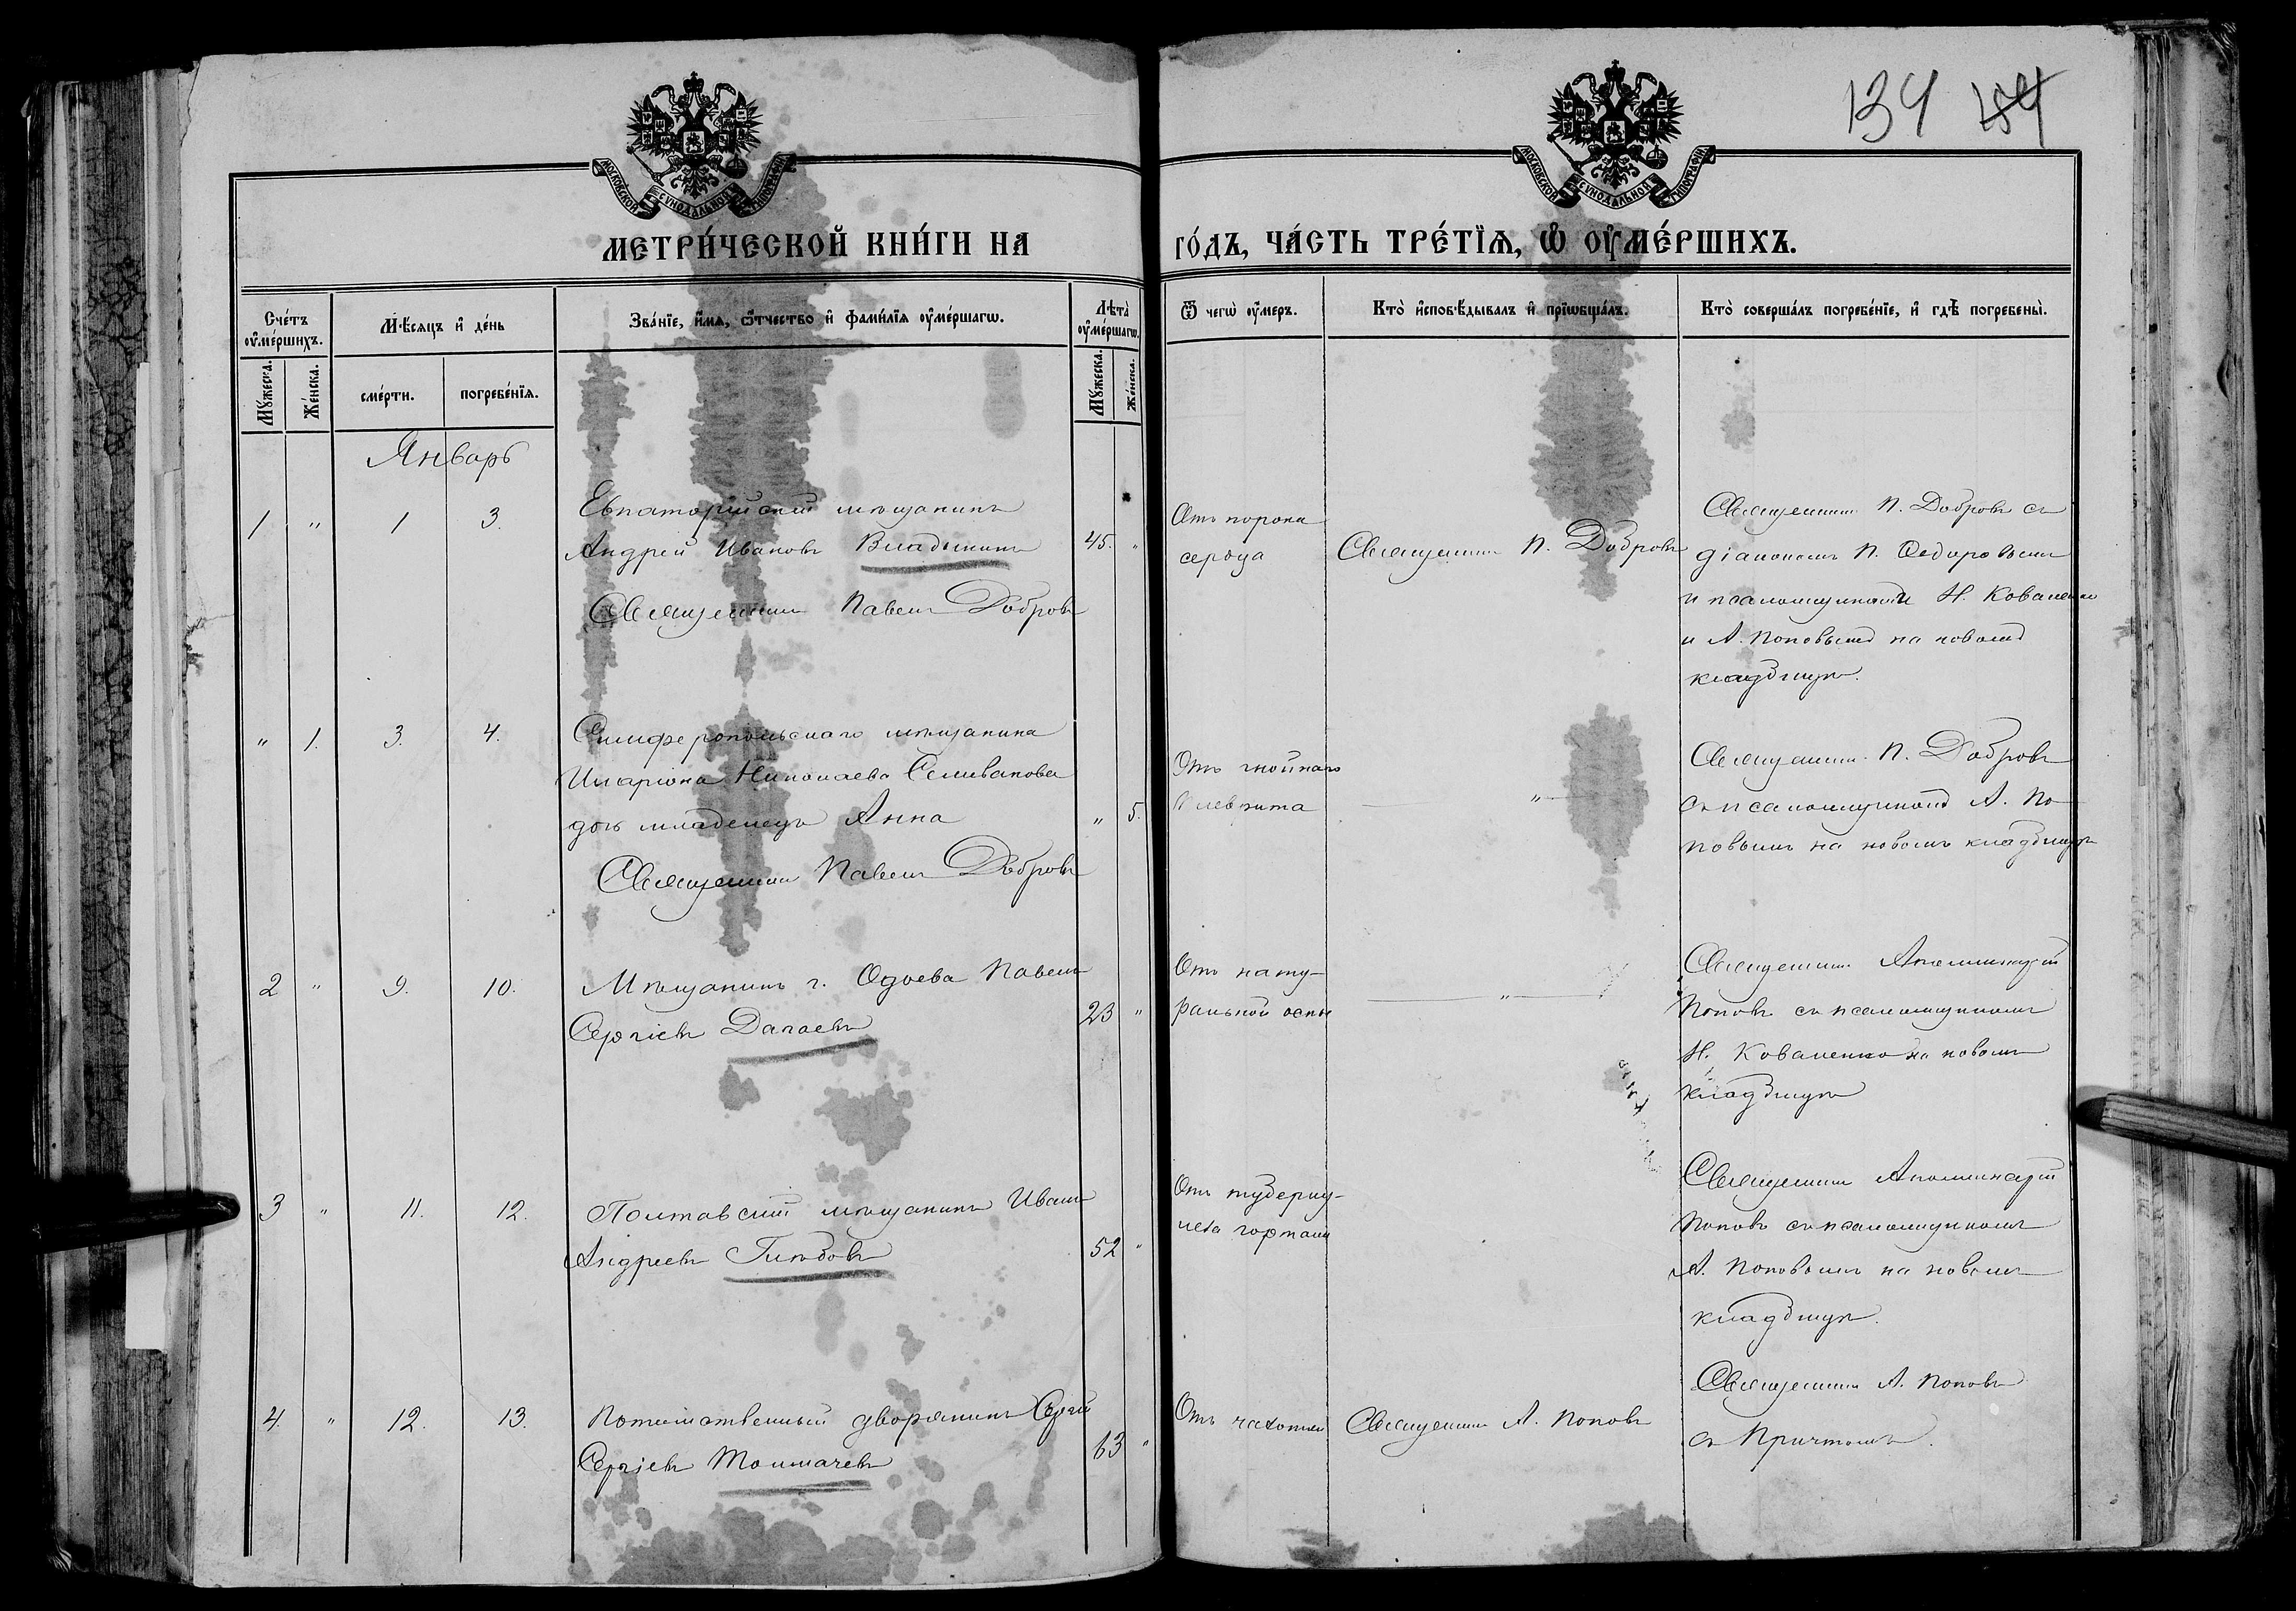 134 154
МОСКОВСКОЙ СѴНОДАЛЬНОЙ ТИПОГРАФІИ
МОСКОВСКОЙ СѴНОДАЛЬНОЙ ТИПОГРАФІИ
МЕТРИ́ЧЕСКОЙ КНИ́ГИ НА ГО́ДЪ, ЧА́СТЬ ТРЕ́ТЇѦ, Ѡ ОУ҆МЕ́РШИХЪ.
Сче́тъ оу҆ме́ршихъ.
Мѣ́сяцъ и҆ де́нь
Зва́нїе, и҆́мѧ, ѻ҆́тчество и҆ фами́лїѧ оу҆ме́ршагѡ.
Лѣта̀ оу҆ме́ршагѡ.
Ѿ чегѡ̀ оу҆́меръ.
Кто̀ и҆сповѣ́дывалъ и҆ прїѡбща́лъ.
Кто̀ соверша́лъ погребе́нїе, и҆ гдѣ̀ погребены̀.
Мꙋ́жеска. Же́нска. сме́рти. погребе́нїѧ. Мꙋ́жеска. Же́нска.
Январь
1 " 1 3. Евпаторійскій мѣщанинъ
Андрей Ивановъ Владыкинъ 45. "
Священникъ Павелъ Добровъ
Отъ порока
сердца
Священникъ П. Добровъ
Священникъ П. Добровъ съ
діакономъ П. Федоровымъ
и псаломщиками Н. Коваленко
и А. Поповымъ на новомъ
кладбищѣ.
" 1. 3. 4. Симферопольскаго мѣщанина
Иларіона Николаева Селиванова
дочь младенецъ Анна " 5.
Священникъ Павелъ Добровъ
Отъ гнойнаго
плеврита
"
Священникъ П. Добровъ
съ псаломщикомъ А. По-
повымъ на новомъ кладбищѣ
2 " 9. 10. Мѣщанинъ г. Одоева Павелъ
Сергіевъ Дапаевъ 23 "
Отъ нату-
ральной оспы
"
Священникъ Аполлинарій
Поповъ съ псаломщикомъ
Н. Коваленко на новомъ
кладбищѣ
3 " 11. 12. Полтавскій мѣщанинъ Иванъ
Андреевъ Глѣбовъ 52 "
Отъ туберку-
леза гортани
Священникъ Аполлинарій
Поповъ съ псаломщикомъ
А. Поповымъ на новомъ
кладбищѣ.
4. " 12. 13. Потомственный дворянинъ Сергій
Сергіевъ Толмачевъ 63 "
Отъ чахотки
Священникъ А. Поповъ
Священникъ А. Поповъ
съ причтомъ.